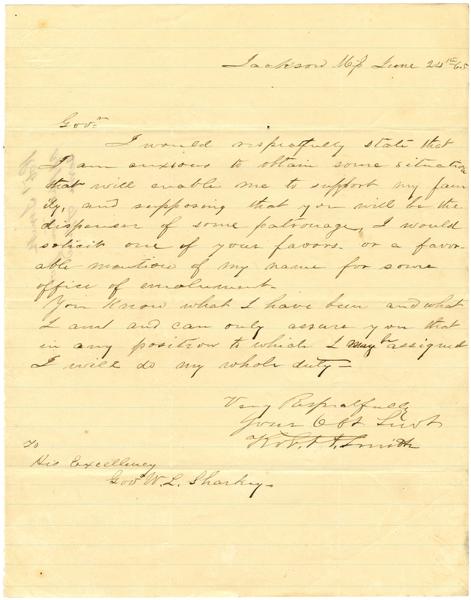 Jackson Mi June 24th 65
Govr
I would respectfully state that
I am anxious to obtain some situation
that will enable me to support my fam
ily, and supposing that you will be the
dispenser of some patronage, I would
solicit one of your favors. or a favor-
able mention of my name for some
office of emolument.
You know what I have been and what
I am and can only assure you that
in any position to which I may be assigned
I will do my whole duty-
Very Respectfully
Your Obt Servt
Smith
To
His Excellency
Govr W. L. Sharkey-